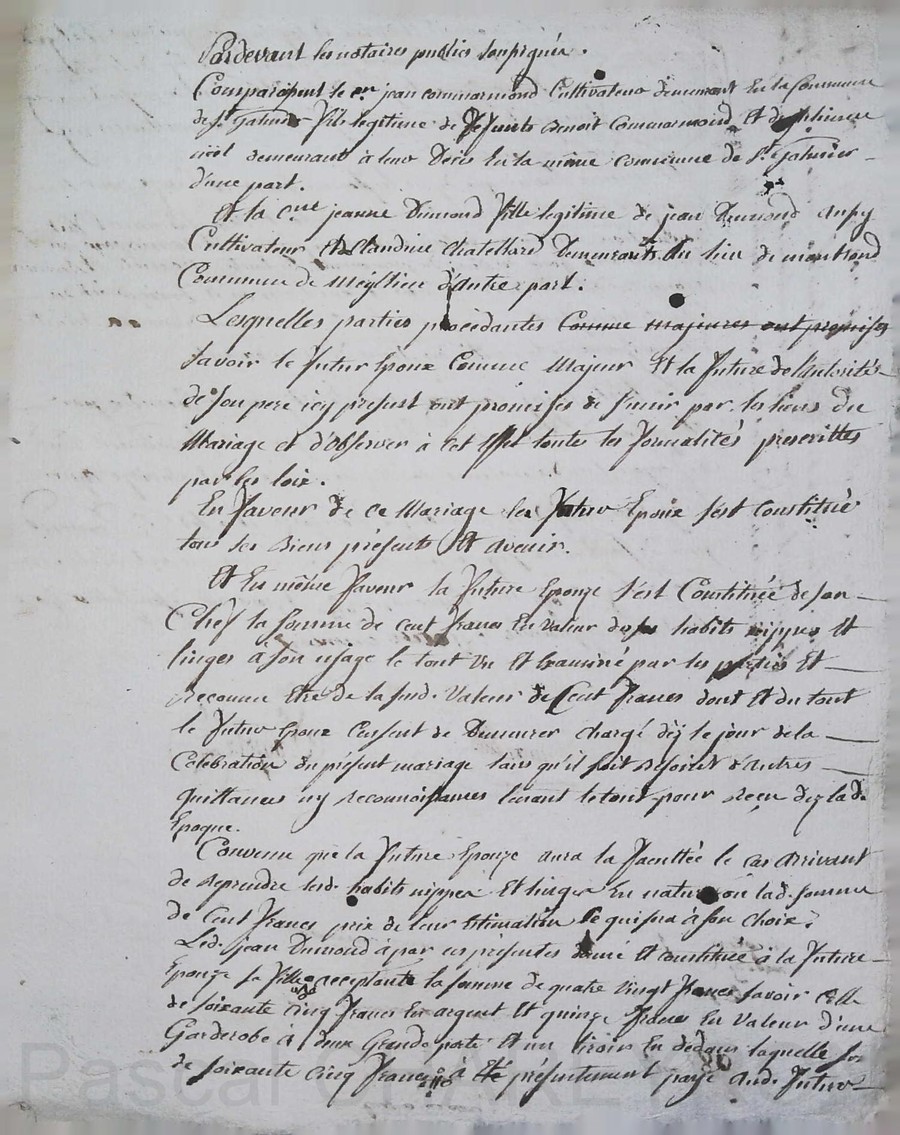 Pardevant les notaires publics soussignés.
Comparaissent le en jean commarmond Cultivateur demeurant En la Commune
de St. Galmier fils legitime de deffunts Benoit Commarmond Et de
demeurant à leur Décès En la même commune de St. Galmier
d'une part.
Et la Cne jeanne Dumond fille legitime de jean Dumond
Cultivateur Et Claudine Chatellard Demeurants Au lieu de montrond
Commune de Meyllieu d'autre part.
Lesquelles parties procédantes Comme majeures ont promises
Savoir le futur Epoux Comme Majeur Et la future de l'autorité
de Son pere icy présent ont promis de s'unir par les liens du
Mariage et d'observer à cet Effet toutes les formalités prescrittes
par les loix.
En faveur de ce Mariage le futur Epoux s'est Constitué
tous ses Biens présents Et avenir.
Et En même faveur la future Epouze s'est Constituée de son
Chef la somme de cent francs En valeur de ses habits nippes Et
linges à son usage le tout vu Et Examiné par les parties Et
Reconnu Etre de la susd. valeur de Cent francs dont Et du tout
le futur Epoux Consent de Demeurer chargé dèz le jour de la
Celebration du présent mariage sans qu'il soit Besoin d'autres
quittances ny reconnoissances tenant le tout pour reçu dez lad.
Epoque.
Convenu que la future Epouze aura la facultée le cas arrivant
de reprendre lesd. habits nippes Et linges En nature ou lad. somme
de Cent francs prix de leur Estimation Ce qui sera à son choix.
Led. jean Dumond à par ces présentes donné Et constitué à la future
Epouze sa fille acceptante la somme de quatre vingt francs savoir celle
de soixante cinq francs en argent Et quinze francs En valeur d'une
Garderobe à deux Grande porte Et un tiroir En dedans laquelle
de soixante cinq francs à été présentement payée aud. futur
Pascal